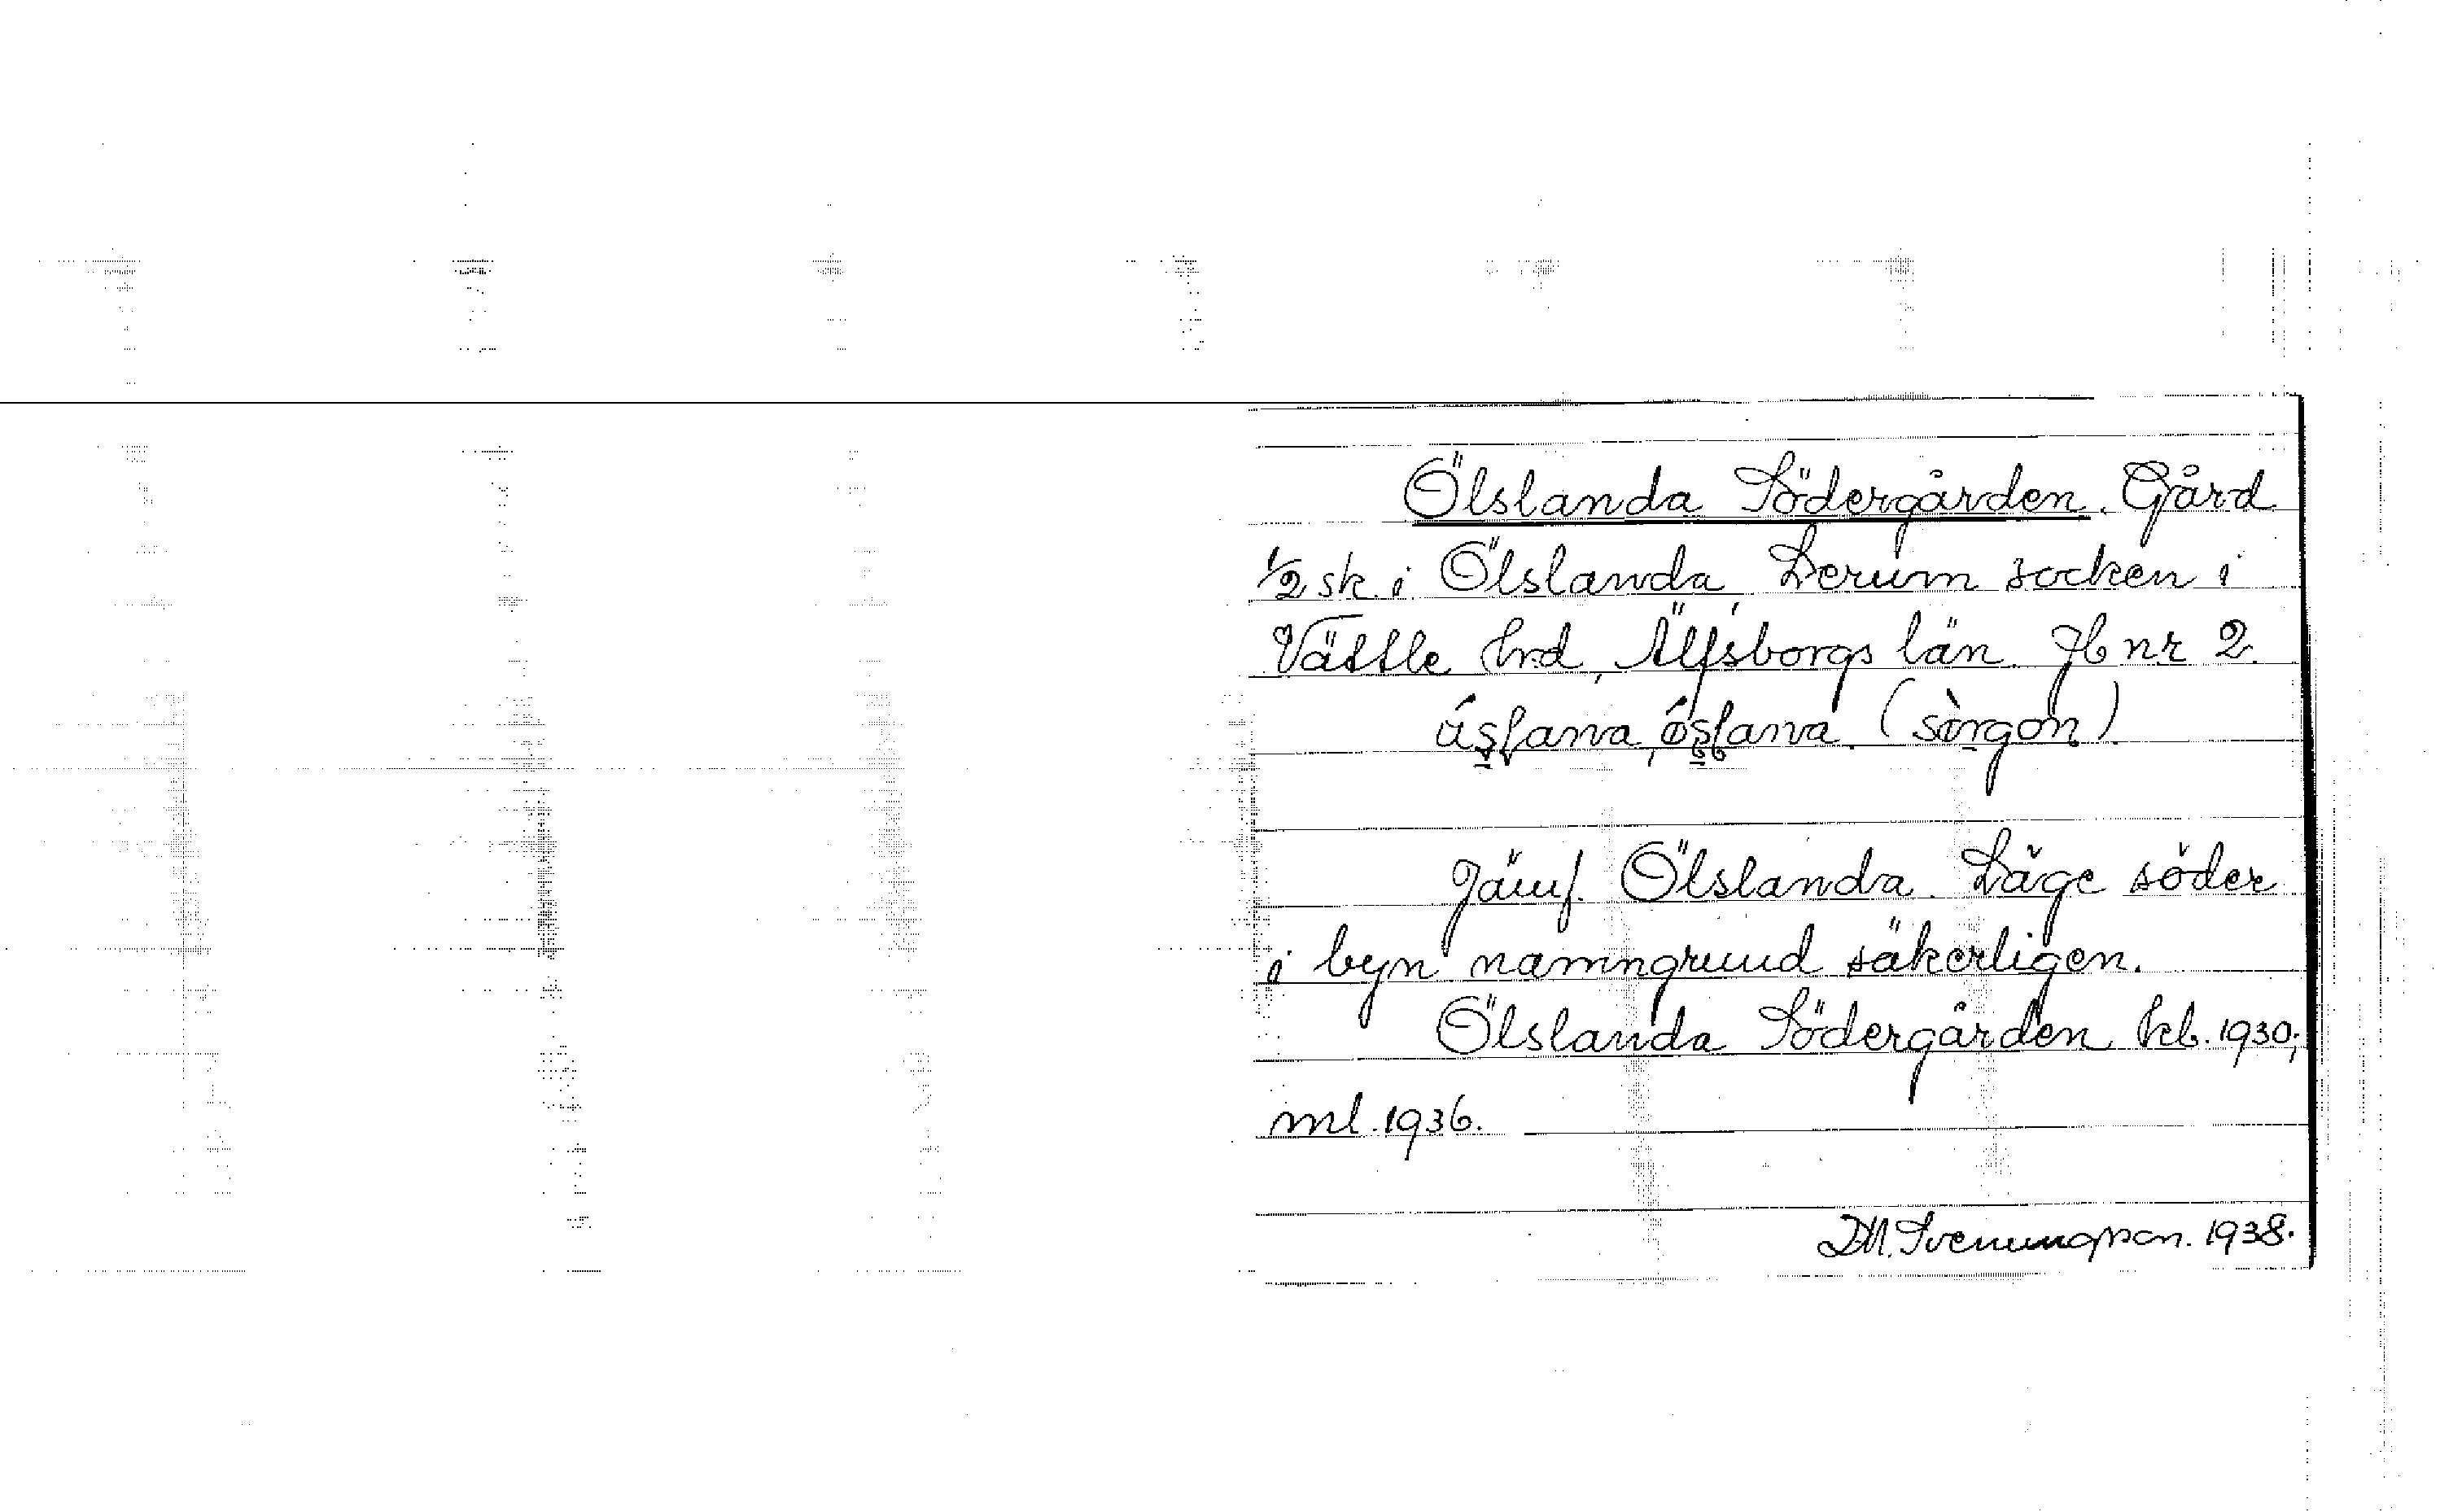 Ölslanda Södergården. Gård
1/2 sk. i Ölslanda Lerum socken i
Vättle hrd, Älfsborgs län. Jb nr 2.
(sìrgon)
Jämf. Ölslanda. Läge söder
i byn namngrund säkerligen.
Ölslanda Södergården kb. 1930;
ml. 1936.
D.M. Svenungsson. 1938.